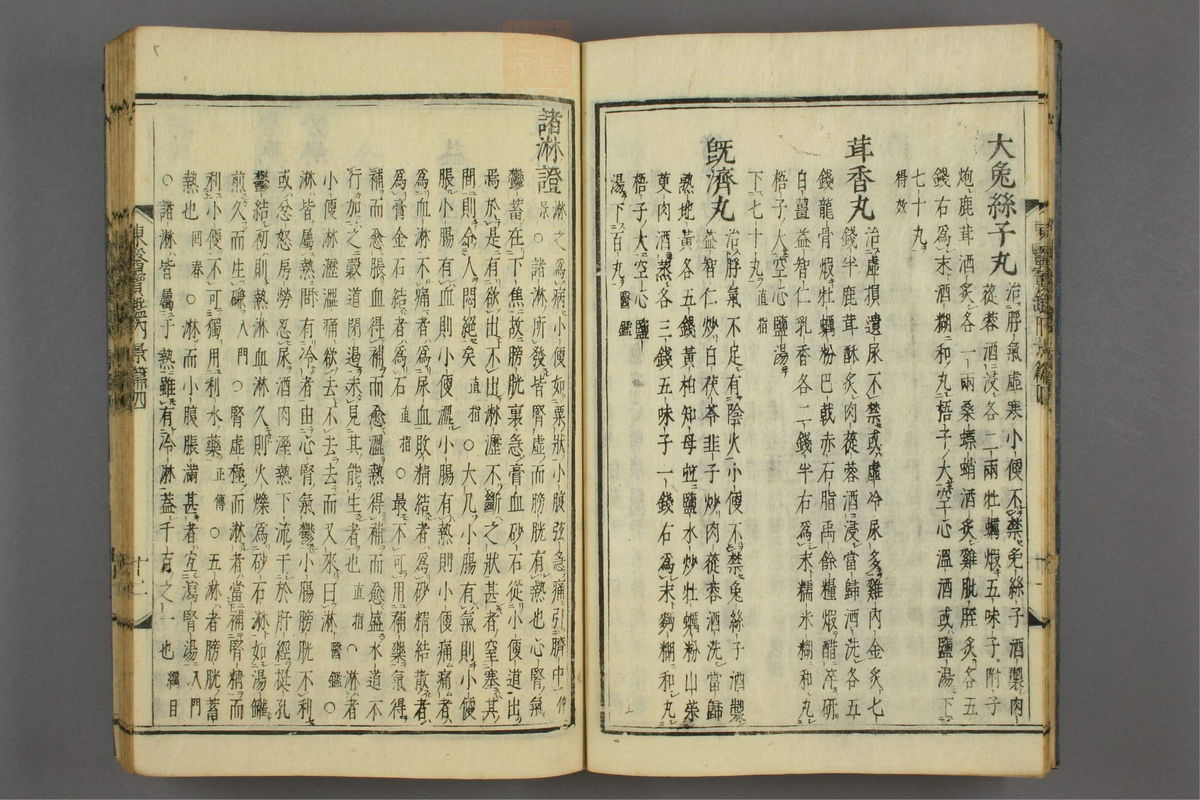 大兔絲子丸 治脬氣虛寒小便不禁兔絲子酒製肉
蓯蓉酒浸各二兩牡蠣煅五味子附子
炮鹿茸酒炙各一兩桑螵蛸酒炙雞肶胵炙各五
錢右爲末酒糊和丸梧子大空心溫酒或鹽湯下
七十丸
得效
茸香丸 治虛損遺尿不禁或虛冷尿多雞內金炙七
錢半鹿茸酥炙肉蓯蓉酒浸當歸酒洗各五
錢龍骨煅牡蠣粉巴戟赤石脂禹餘糧煅醋淬硏
白薑益智仁乳香各二錢半右爲末糯米糊和丸
梧子大空心鹽湯
下七十丸直指
旣濟丸 治脬氣不足有陰火小便不禁兔絲子酒製
益智仁炒白茯苓韭子炒肉蓯蓉酒洗當歸
熟地黃各五錢黃柏知母並鹽水炒牡蠣粉山茱
萸肉酒蒸各三錢五味子一錢右爲末麪糊和丸
梧子大空心鹽
湯下百丸醫鑑
東醫寶鑑內景篇四
十一
諸淋證 淋之爲病小便如粟狀小腹弦急痛引臍中仲
景○諸淋所發皆腎虛而膀胱有熱也心腎氣
鬱蓄在下焦故膀胱裏急膏血砂石從小便道出
焉於是有欲出不出淋瀝不斷之狀甚者窒塞其
間則令人悶絕矣直指○大凡小腸有氣則小便
脹小腸有血則小便澁小腸有熱則小便痛痛者
爲血淋不痛者爲尿血敗精結者爲砂精結散者
爲膏金石結者爲石直指○最不可用補藥氣得
補而愈脹血得補而愈澁熱得補而愈盛水道不
行加之穀道閉遏未見其能生者也直指○淋者
小便淋瀝澁痛欲去不去去而又來曰淋醫鑑○
淋皆屬熱間有冷者由心腎氣鬱小腸膀胱不利
或忿怒房勞忍尿酒肉溼熱下流干於肝經挺孔
鬱結初則熱淋血淋久則火爍爲砂石淋如湯罐
煎久而生磏入門○腎虛極而淋者當補腎精而
利小便不可獨用利水藥正傳○五淋者膀胱蓄
熱也回春○淋而小腹脹滿甚者宜瀉腎湯入門
○諸淋皆屬于熱雖有冷淋蓋千百之一也綱目
東醫寶鑑內景篇四
十二